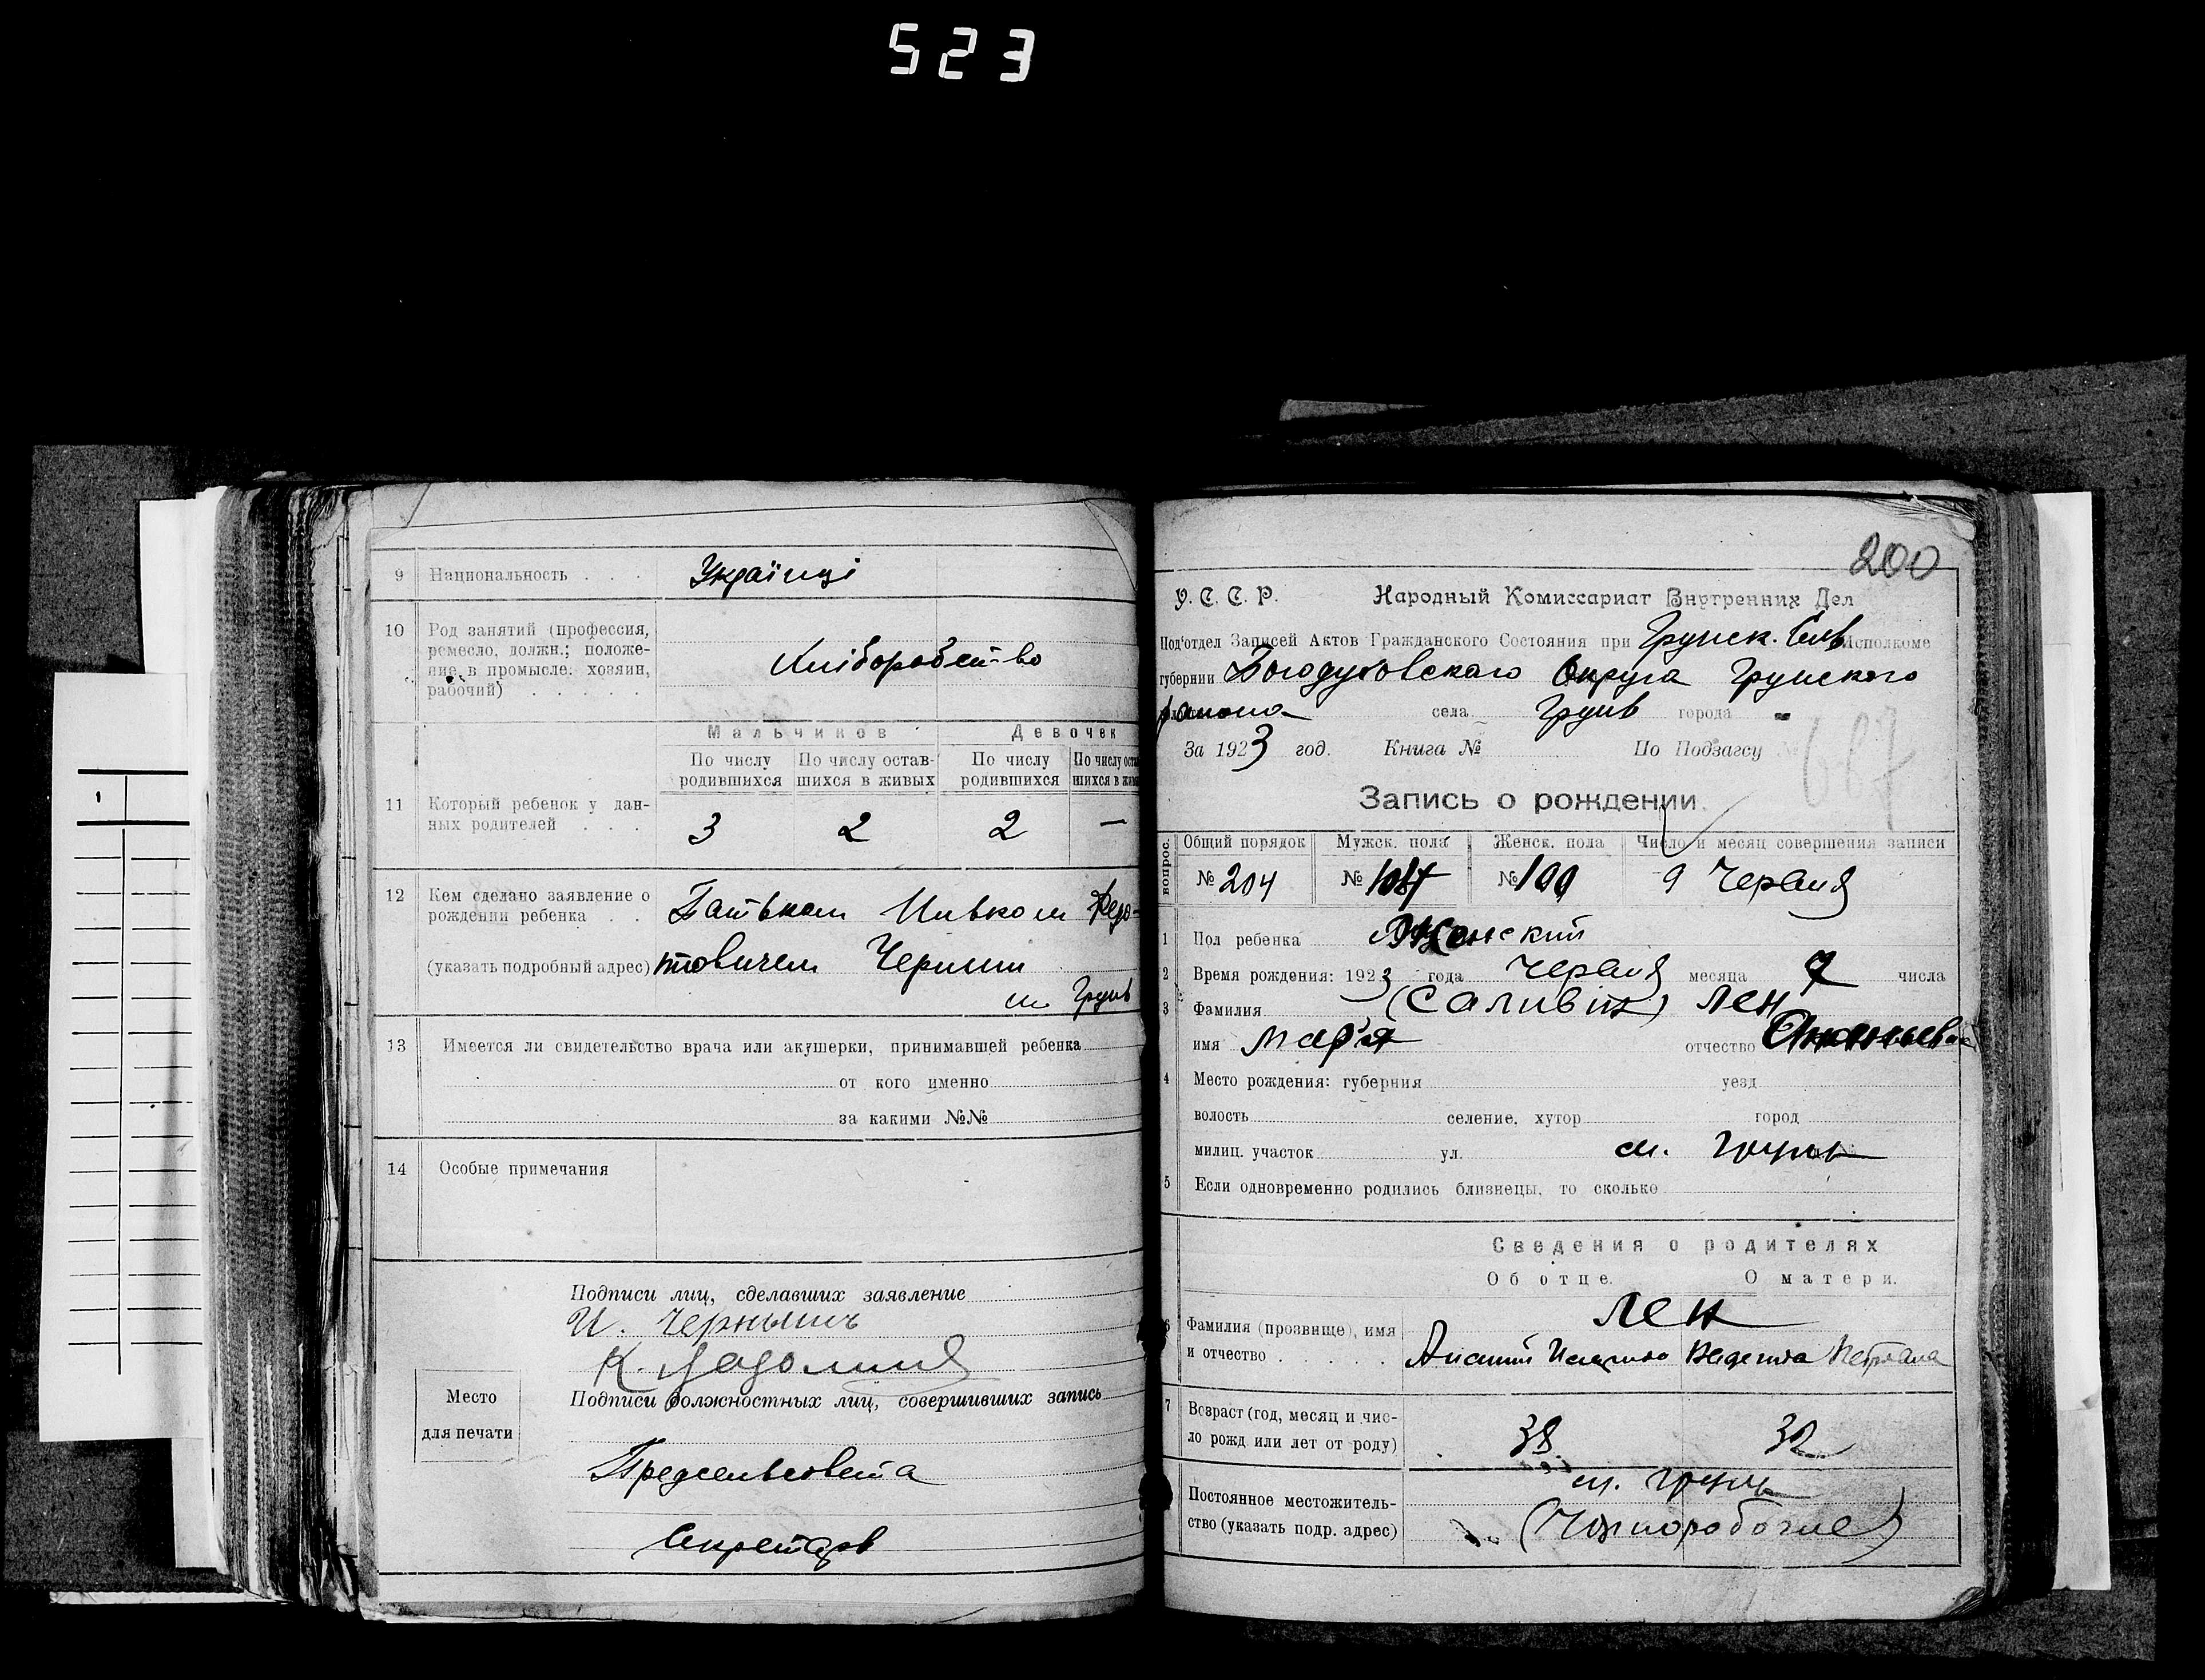 523
9 Национальность . . . Українці
10 Род занятий (профессия,
ремесло, должн.; положе-
ние в промысле: хозяин,
рабочий) . . . . .
Хліборобство
Мальчиков Девочек
По числу родившихся По числу остав-шихся в живых По числу родившихся По числу оста
шихся в жив
11 Который ребенок у дан-
ных родителей . . .
3 2 2 —
12 Кем сделано заявление о
рождении ребенка . .
Батьком Федо-
(указать подробный адрес) товичем Черниш
м. Грунь
13 Имеется ли свидетельство врача или акушерки, принимавшей ребенка
от кого именно
за какими №№
14 Особые примечания
Подписи лиц, сделавших заявление
И. Чернышъ
Место
для печати
Подписи должностных лиц, совершивших запись
Предсельсовета
Секретарь
200
У. С. С. Р. Народный Комиссариат Внутренних Дел
Под'отдел Записей Актов Гражданского Состояния при Грунск. Сель Исполкоме
губернии Богодуховскаго Округа Грунского
района села Грунь города -
За 1923 год. Книга № По Подзагсу
687
Запись о рождении.
вопрос. Общий порядок Мужск. пола Женск. пола Число и месяц совершения записи
№ 204 № № 100 9 Червня
1 Пол ребенка Женский
2 Время рождения: 1923 года Червня месяца 7 числа
3 Фамилия Лен
имя Мар'я отчество Ананьевна
4 Место рождения: губерния уезд
волость селение, хутор город
милиц. участок ул. м. Грунь
5 Если одновременно родились близнецы, то сколько
Сведения о родителях
Об отце. О матери.
Лен
6 Фамилия (прозвище), имя
и отчество . . . . .
Петровна
7 Возраст (год, месяц и чис-
ло рожд или лет от роду)
38 32
Постоянное местожитель-
ство (указать подр. адрес)
м. Грунь
(Чорноробочие)